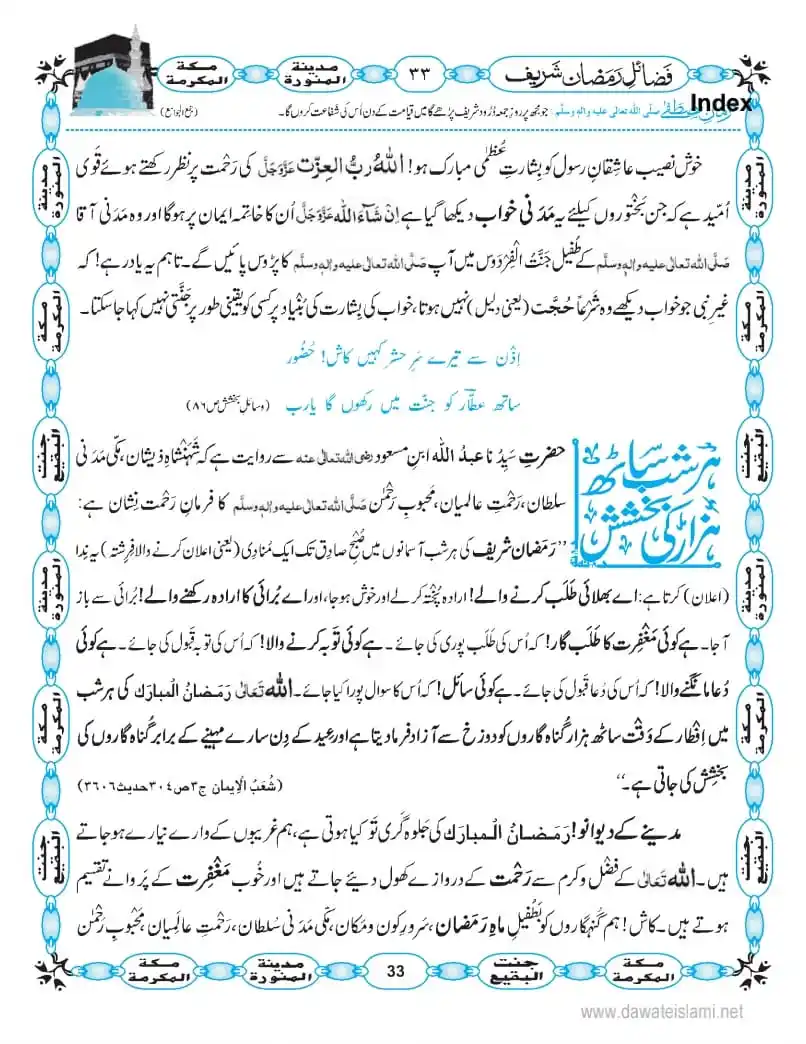 فَضائلِ رَمَضان شریف
۳۳
مدینة المنورة
مکة المکرمة
Index
صلَّی اللہ تعالٰی علیہ والہٖ وسلَّم : جو مجھ پر روزِ جمعہ دُرُود شریف پڑھے گا میں قیامت کے دن اُس کی شفاعت کروں گا۔ (جمع الجوامع)
خوش نصیب عاشِقانِ رسول کو بِشارتِ عُظمٰی مبارک ہو! اللہُ ربُّ العِزَّت عَزَّوَجَلَّ کی رَحْمت پر نظر رکھتے ہوئے قَوی
اُمّید ہے کہ جن بَختوروں کیلئے یہ مَدَنی خواب دیکھا گیا ہے اِنْ شَآءَ اللہ عَزَّوَجَلَّ اُن کا خاتمہ ایمان پر ہوگا اور وہ مَدَنی آقا
صَلَّی اللہ تعالٰی علیہ والہٖ وسلَّم کے طفیل جَنَّتُ الْفِرْدَوس میں آپ صَلَّی اللہ تعالٰی علیہ والہٖ وسلَّم کا پڑوس پائیں گے۔ تاہم یہ یاد رہے! کہ
غیرِ نبی جو خواب دیکھے وہ شَرْعاً حُجَّت (یعنی دلیل) نہیں ہوتا، خواب کی بِشارت کی بُنْیاد پر کسی کو یقینی طور پر جَنّتی نہیں کہا جاسکتا۔
اِذْن سے تیرے سَرِ حشر کہیں کاش! حُضُور
ساتھ عطّارؔ کو جنّت میں رکھوں گا یارب (وسائلِ بخشش ص۸۶)
ہَر شب ساٹھ
ہزار کی بخشش
حضرتِ سَیِّدُنا عبدُ اللہ ابنِ مسعود رضی اللہ تعالٰی عنہ سے روایت ہے کہ شَہَنْشاہِ ذیشان، مکّی مَدَنی
سلطان، رَحْمتِ عالمیان، مَحبوبِ رَحْمٰن صَلَّی اللہ تعالٰی علیہ والہٖ وسلَّم کا فرمانِ رَحْمت نِشان ہے:
’’رَمَضان شریف کی ہر شب آسمانوں میں صُبْحِ صادِق تک ایک مُنادِی (یعنی اعلان کرنے والا فِرِشتہ) یہ نِدا
(اعلان) کرتا ہے: اے بھلائی طَلَب کرنے والے! ارادہ پُخْتہ کرلے اور خوش ہوجا، اور اے بُرائی کا ارادہ رکھنے والے! بُرائی سے باز
آجا۔ ہے کوئی مَغْفِرت کا طَلَب گار! کہ اُس کی طَلَب پوری کی جائے۔ ہے کوئی تَوبہ کرنے والا! کہ اُس کی توبہ قَبول کی جائے۔ ہے کوئی
دُعا مانگنے والا! کہ اُس کی دُعا قَبول کی جائے۔ ہے کوئی سائل! کہ اُس کا سوال پورا کیا جائے۔ اللہ تَعَالٰی رَمَضانُ الْمبارَک کی ہر شب
میں اِفطار کے وَقْت ساٹھ ہزار گُناہ گاروں کو دوزخ سے آزاد فرما دیتا ہے اور عید کے دِن سارے مہینے کے برابر گُناہ گاروں کی
بخشِش کی جاتی ہے۔‘‘ (شُعَبُ الْاِیمان ج۳ص۳۰۴حدیث۳۶۰۶)
مدینے کے دیوانو! رَمَضانُ الْمبارَک کی جَلوہ گَری تَو کیا ہوتی ہے، ہم غریبوں کے وارے نیارے ہوجاتے
ہیں۔ اللہ تَعَالٰی کے فَضْل و کَرم سے رَحْمت کے دروازے کھول دیئے جاتے ہیں اور خُوب مَغْفِرت کے پَروانے تقسیم
ہوتے ہیں۔ کاش! ہم گُنہگاروں کو بَطُفیلِ ماہِ رَمَضان، سَرورِ کون و مَکان، مکّی مَدَنی سُلطان، رَحْمتِ عالَمِیان، مَحبوبِ رَحْمٰن
مدینة المنورة
مکة المکرمة
جنت البقیع
مدینة المنورة
مکة المکرمة
جنت البقیع
مدینة المنورة
مکة المکرمة
جنت البقیع
مدینة المنورة
مکة المکرمة
جنت البقیع
مکة المکرمة
جنت البقیع
33
مدینة المنورة
مکة المکرمة
www.dawateislami.net